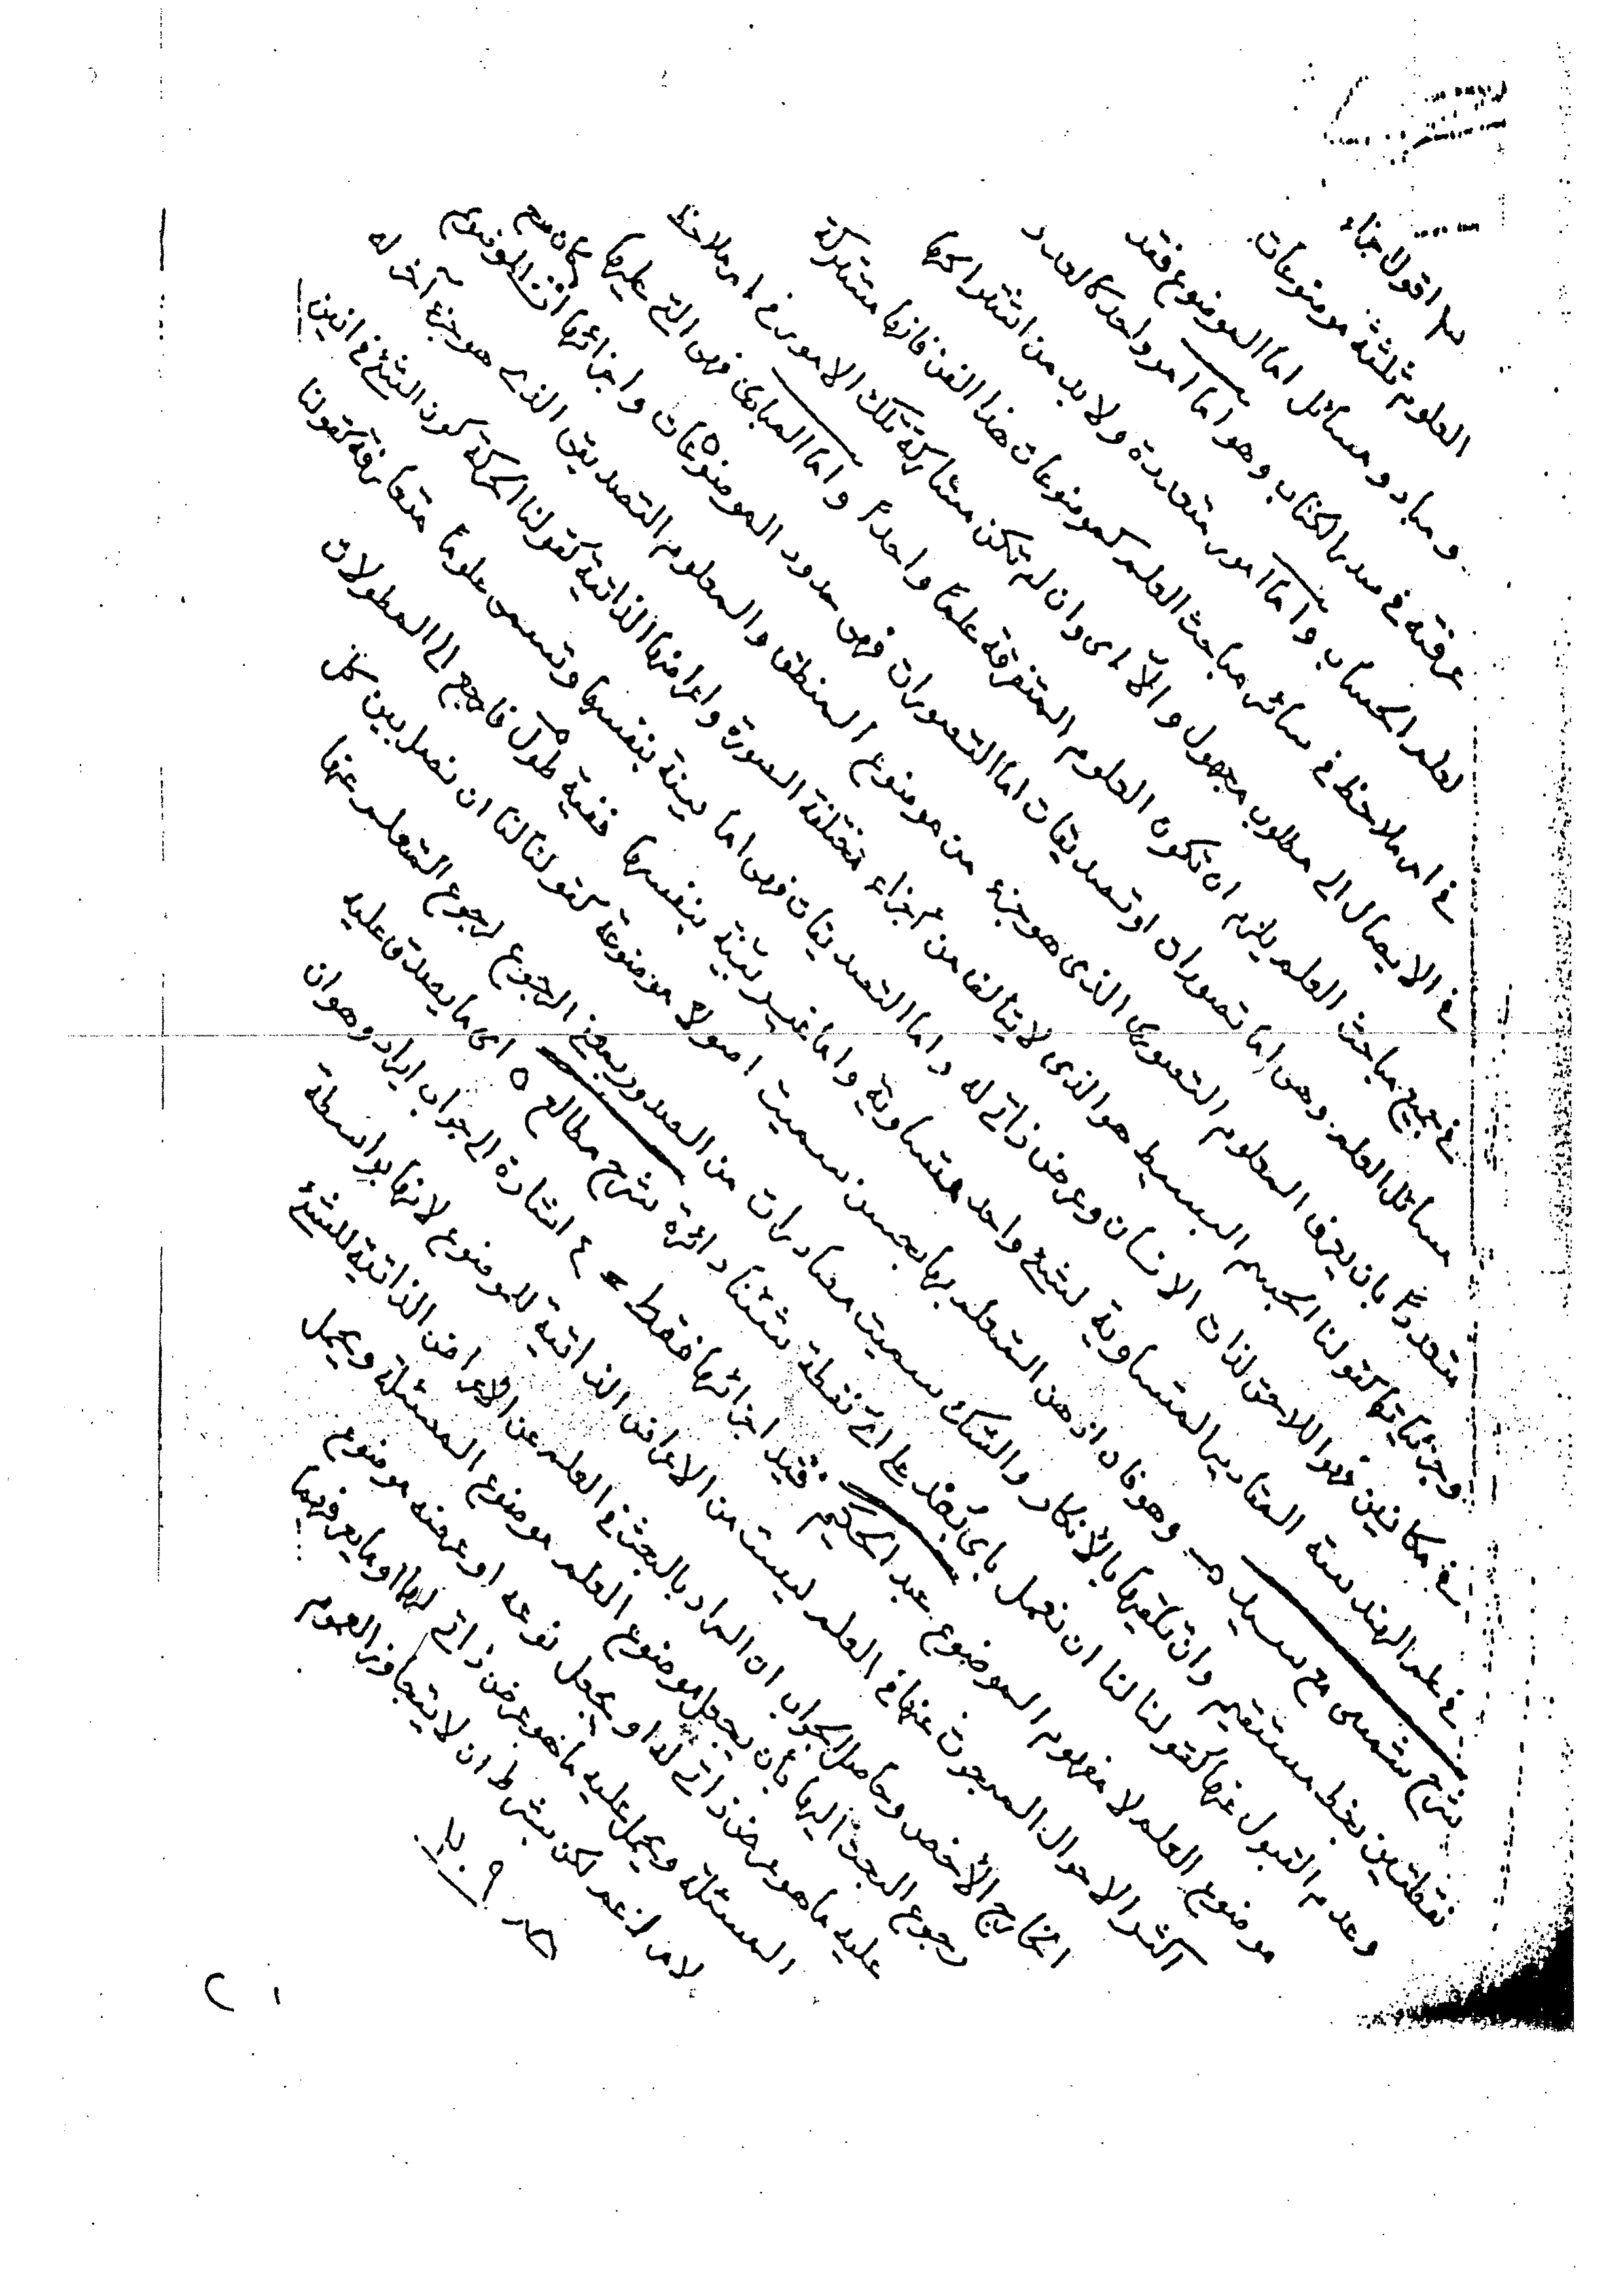 ٣ اقول اجزاء
العلوم ثلثة موضوعات
ومباد ومسائل اما الموضوع فقد
عرفته في صدر الكتاب وهو اما امر واحد كالعدد
لعلم الحساب واما امور متعددة ولا بد من اشتراكها
في امر ملاحظ في سائر مباحث العلم كموضوعات هذا الفن فانها مشتركة
في الايصال الى مطلوب مجهول والا اى وان لم تكن مشاركة تلك الامور في امر ملاحظ
في جميع مباحث العلم يلزم ان تكون العلوم المتفرقة علما واحدا واما المبادى فهى التي عليها
مسائل العلم وهى اما تصورات او تصديقات اما التصورات فهى حدود الموضوعات واجزائها الموضوع
متعددا بان يعرف المعلوم التصورى الذى هو جزء من موضوع المنطق والمعلوم التصديقى الذى هو جزء آخر له
وجزئياتها كقولنا الجسم البسيط هو الذى لا يتألف من اجزاء مختلفة الصورة واعراضها الذاتية كقولنا الحركة كون الشيئ في انين
في مكانين فهو اللاحق لذات الانسان وعرض ذاتي له واما التصديقات فهى اما بينة بنفسها وتسمى علوما متعارفة كقولنا
في علم الهندسة المقادير المتساوية لشيئ واحد متساوية واما غير بينة بنفسها ففيه طول فارجع الى المطولات
شرح شمسى مع سيد وهو فان اذعن المتعلم بها بحسن سميت اصولا موضوعة كقولنا لنا ان نصل بين كل
نقطتين بخط مستقيم وان تلقيها بالانكار والشك سميت مصادرات من الصدور بمعنى الرجوع لرجوع المتعلم عنها
وعدم القبول عنها كقولنا لنا ان نعمل باى بعد على اى نقطة شئنا دائرة شرح مطالع ٥ اى ما يصدق عليه
موضوع العلم لا مفهوم الموضوع عبد الحكيم فقيد اجزائها فقط ٤ اشارة الى جواب ايراد وهو ان
اكثر الاحوال المبحوث عنها في العلم ليست من الاعراض الذاتية للموضوع لانها بواسطة
الخارج الاخص وحاصل الجواب ان المراد بالبحث في العلم عن الاعراض الذاتية للشيئ
رجوع البحث اليها بان يجعل موضوع العلم موضوع المسئلة ويحمل
عليه ما هو عرض ذاتي له او يجعل نوعه او عرضه موضوع
المسئلة ويحمل عليه ما هو عرض ذاتي لها او ما
لامر اعم لكن بشرط ان لا يتجاوز العموم